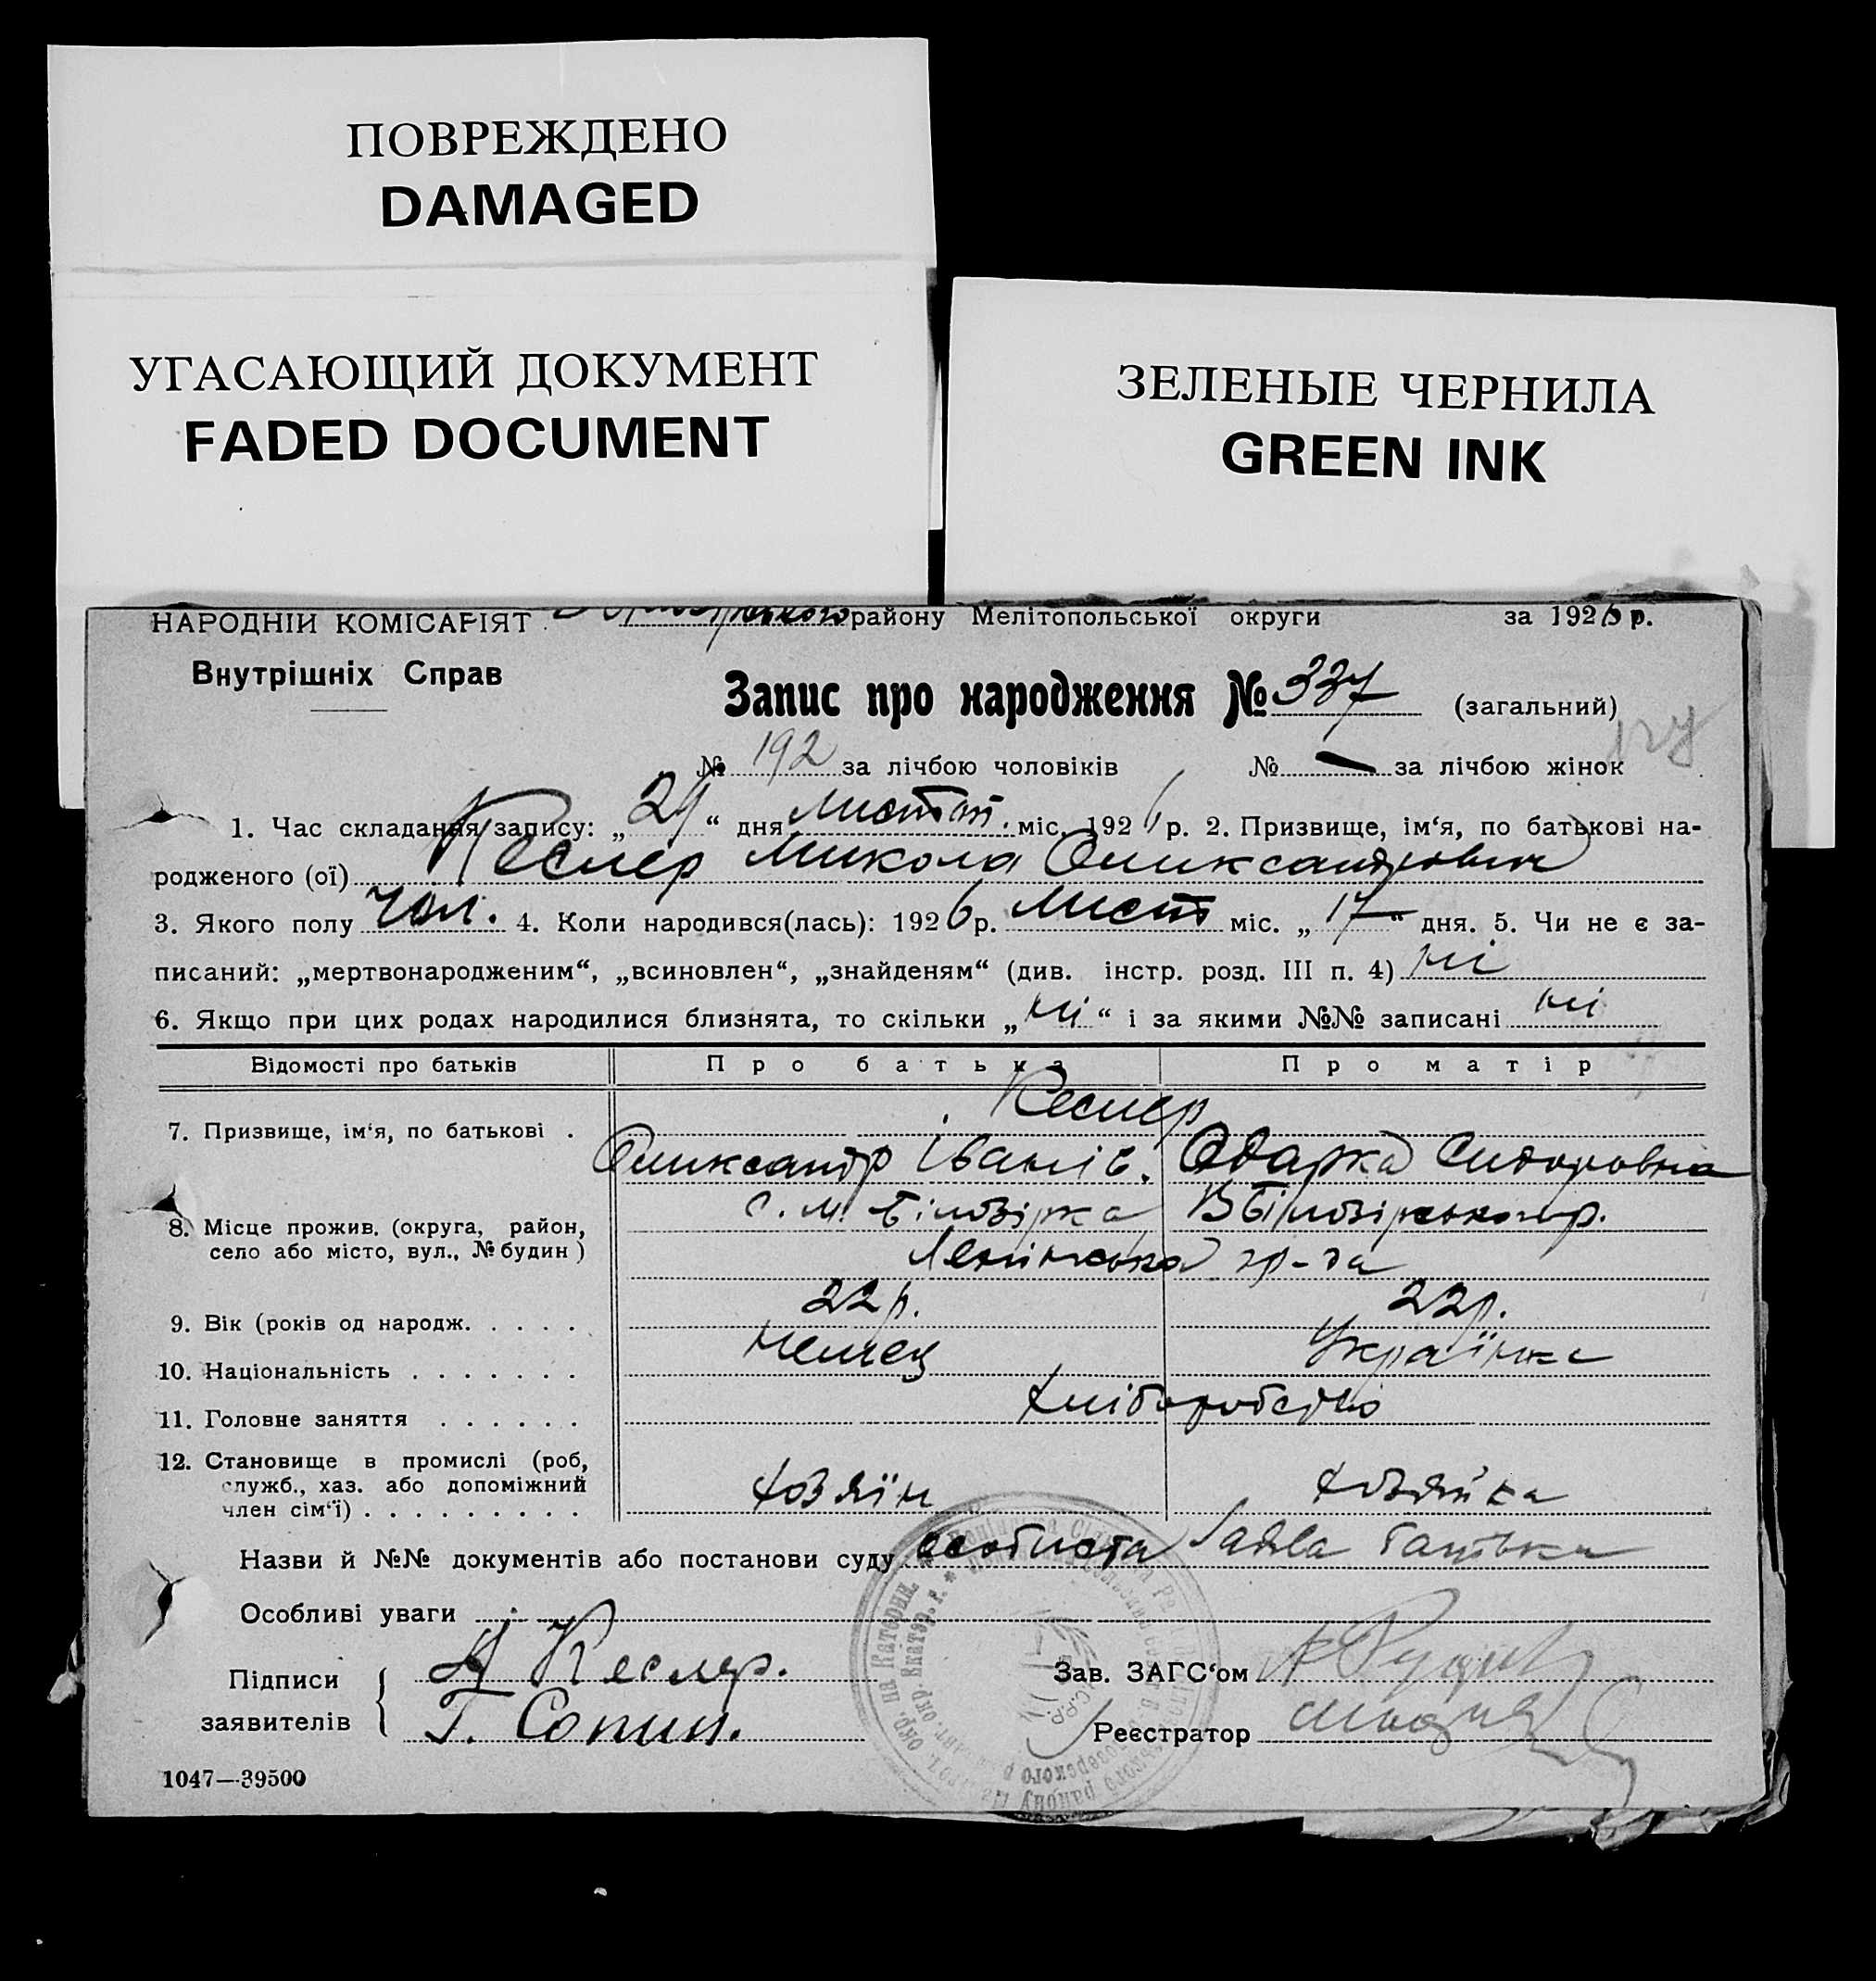 ПОВРЕЖДЕНО
DAMAGED
УГАСАЮЩИЙ ДОКУМЕНТ
FADED DOCUMENT
ЗЕЛЕНЫЕ ЧЕРНИЛА
GREEN INK
НАРОДНІЙ КОМІСАРІЯТ району Мелітопольської округи за 1926 р.
Внутрішніх Справ
Запис про народження № 337 (загальний)
№ 192 за лічбою чоловіків № — за лічбою жінок
1. Час складання запису: „24“ дня листоп. міс. 1926 р. 2. Призвище, ім‘я, по батькові на-
родженого (ої) Кеслер Микола Олиександрович
3. Якого полу Чол. 4. Коли народився(лась): 1926 р. Лист міс. „17“ дня. 5. Чи не є за-
писаний: „мертвонародженим“, „всиновлен“, „знайденям“ (див. інстр. розд. III п. 4) ні
6. Якщо при цих родах народилися близнята, то скільки „ні“ і за якими №№ записані ні
Відомості про батьків Про батька Про матір
Кеслер
7. Призвище, ім‘я, по батькові .
Оликсандр Іванів. Одарка Сидоровна
с. М. Білозірка В Білозірськ р.
8. Місце прожив. (округа, район,
село або місто, вул., № будин )
22 р. 22 р.
9. Вік (років од народж. . . . .
немец Українка
10. Національність . . . . . . .
Хліборобство
11. Головне заняття . . . . . .
12. Становище в промислі (роб,
служб., хаз. або допоміжний
член сім‘ї) . . . . . . . . . Хозяїн Хозяйка
Назви й №№ документів або постанови суду особиста заява батька
Особливі уваги
Підписи
заявителів
А Кеслер.
Т. Сопин.
Зав. ЗАГС‘ом
Реєстратор
1047—39500